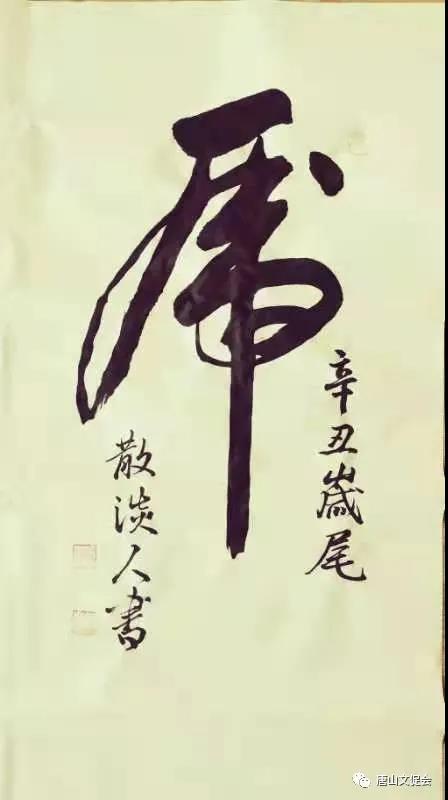 虎
辛丑歲尾
散淡人书
唐山文促会